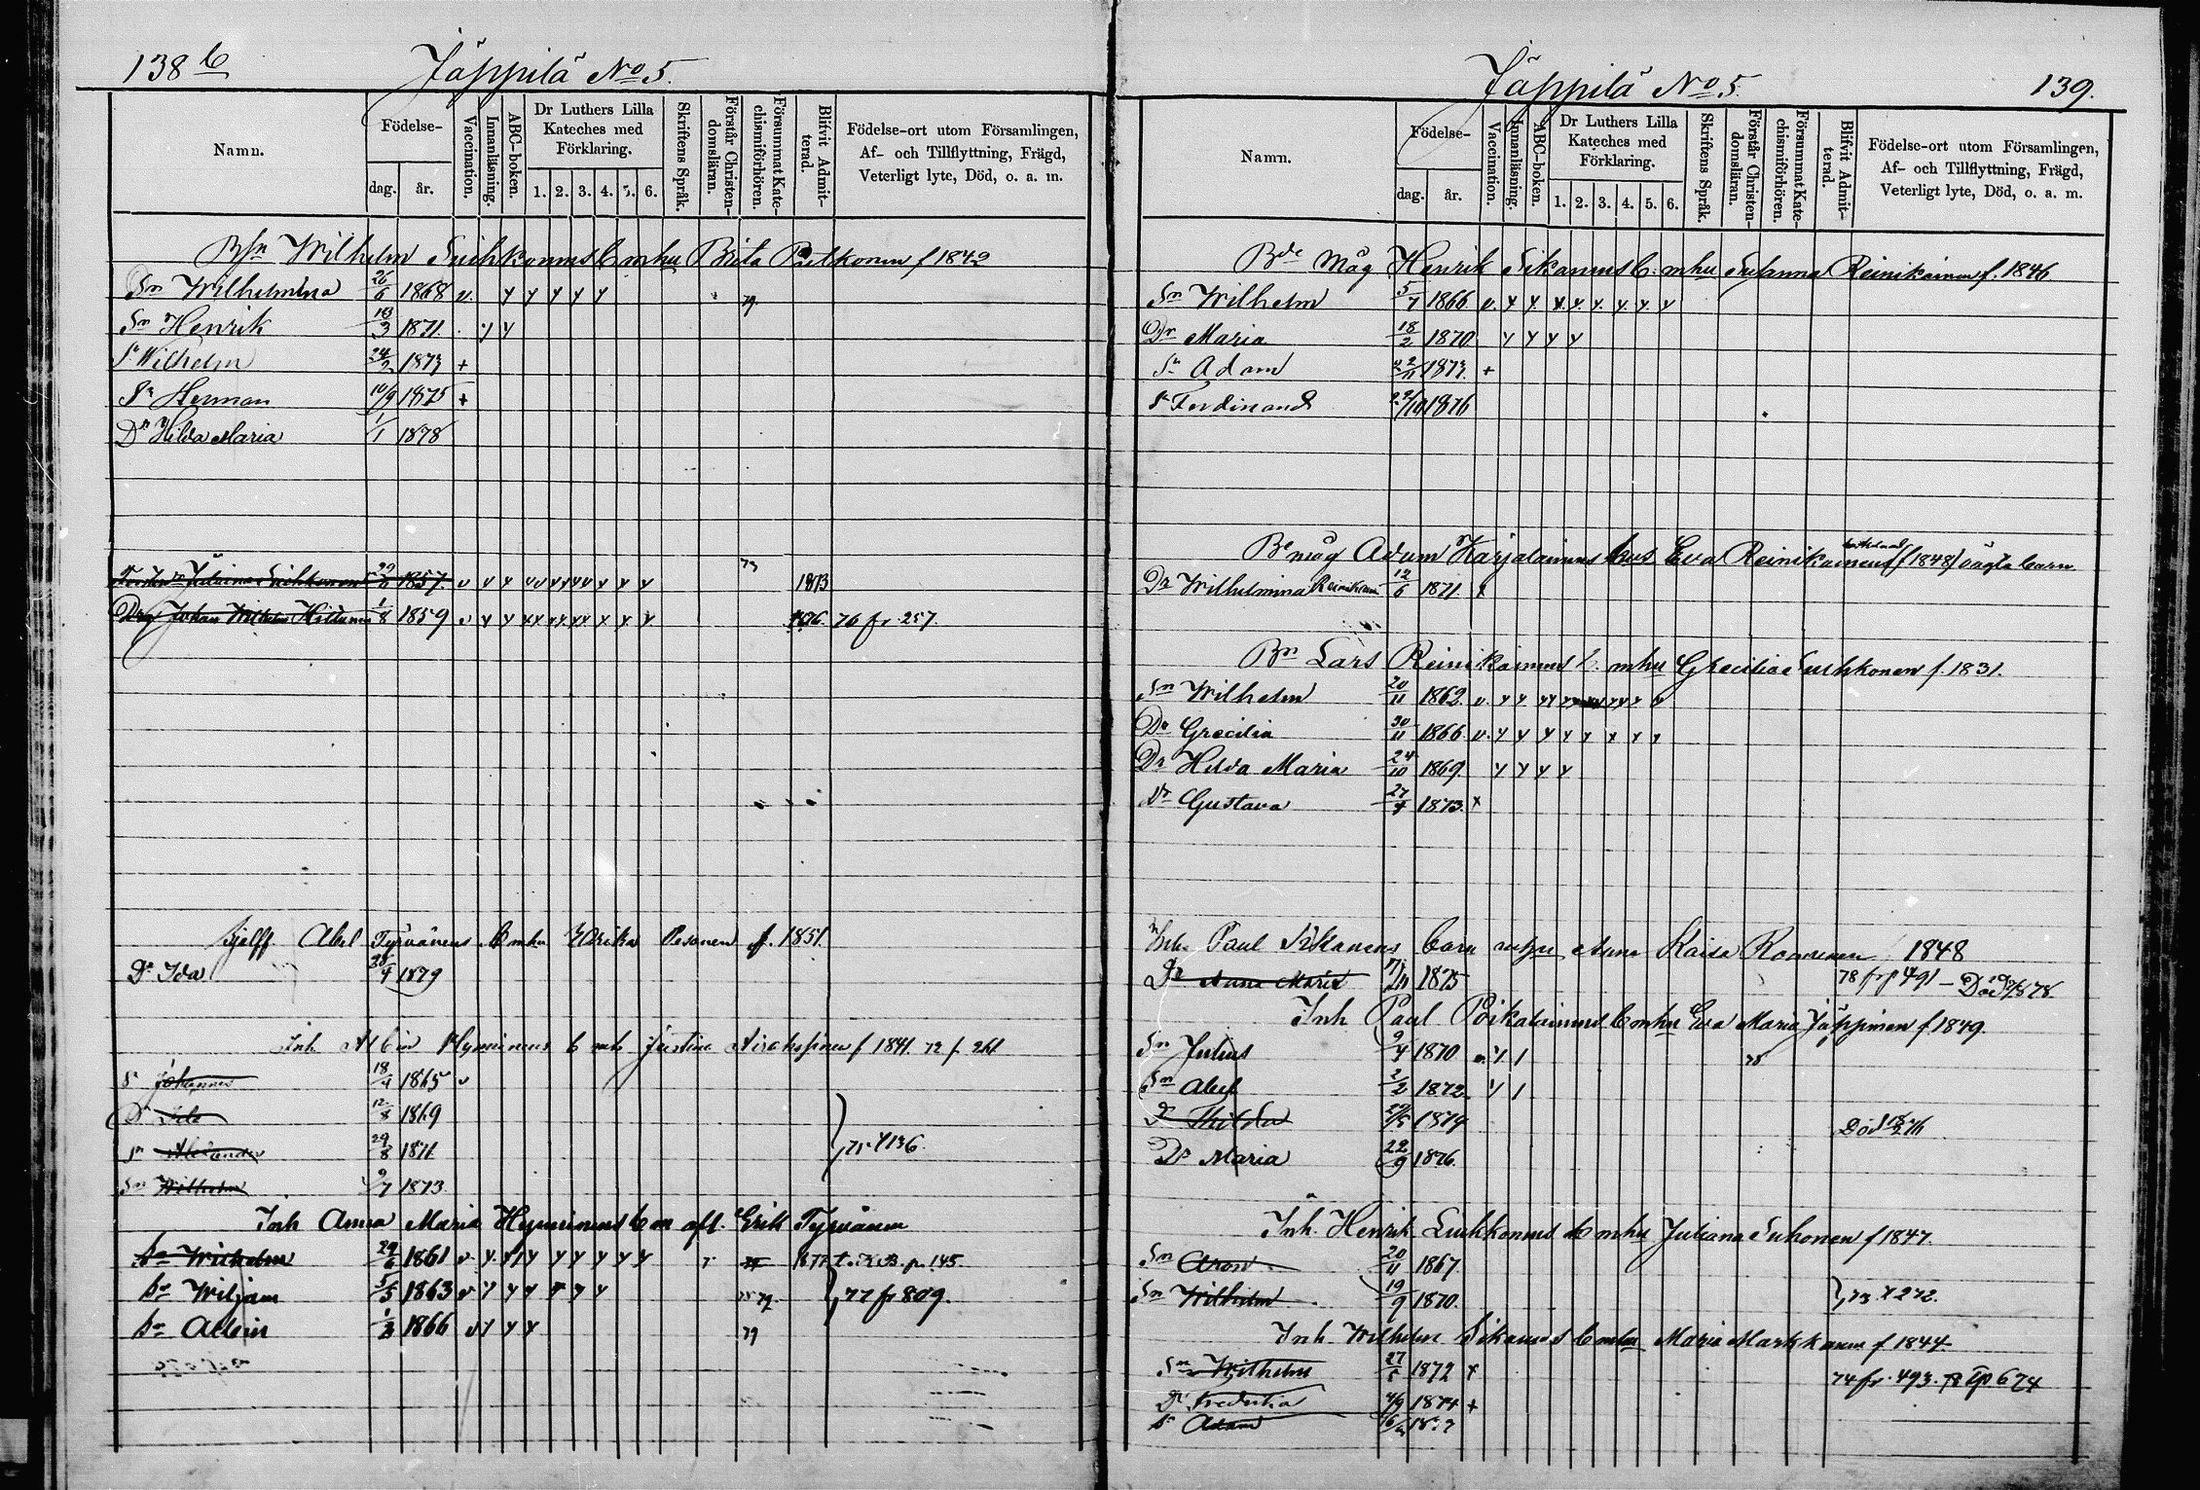 138 b
Jäppilä No 5.
Namn.
Födelse-
dag.
år.
Vaccination.
Innanläsning.
ABC-boken.
Dr Luthers Lilla
Kateches med
Förklaring.
1. 2. 3. 4. 5. 6.
Skriftens Språk.
Förstår Christen-
domsläran.
Försummat Kate-
chismiförhören.
Blifvit Admit-
terad.
Födelse-ort utom Församlingen,
Af- och Tillflyttning, Frägd,
Veterligt lyte, Död, o. a. m.
Wilhelm b mhu Brita f 1842
Sn Wilhelmina 26/6 1868 v. y y y y y 79
Sn Henrik 13/3 1871 y y
Sn Wilhelm 24/2 1873 +
Sn Herman 10/9 1875 +
Dr Hilda Maria 1/1 1878
1857 v y y y y y y y y y y 73 1873
Johan Wilhelm 1/8 1859 v y y y y y y y y y 1876 76 fr 257
Abel Tyrvänens b mhu Ulrika Pesonen f. 1851
Dr Ida 1879
Inh Albin Hyminens b mh Justina f 1841. 72 f. 261
Sn Johannes 18/4 1865 v
Dr Ida 12/8 1869
Sn Alexander 29/8 1871 75 f 136
Sn Wilhelm 9/7 1873
Inh Anna Maria Hyminens b m afl. Erik Tyrvänen
Sn Wilhelm 29/6 1861 v. y y y y y y y y y 1877 p. 145
Sn Wiljam 5/5 1863 v y y y y y y 79 77 fr 809.
Sn Albin 1/3 1866 v y y y 79
Jäppilä No 5.
139.
Namn.
Födelse-
dag.
år.
Vaccination.
Innanläsning.
ABC-boken.
Dr Luthers Lilla
Kateches med
Förklaring.
1. 2. 3. 4. 5. 6.
Skriftens Språk.
Förstår Christen-
domsläran.
Försummat Kate-
chismiförhören.
Blifvit Admit-
terad.
Födelse-ort utom Församlingen,
Af- och Tillflyttning, Frägd,
Veterligt lyte, Död, o. a. m.
Bde måg Henrik Sikanens b. mhu Susanna Reinikainen f. 1846
Sn Wilhelm 5/7 1866 v. y. y. y. y. y. y. y. y
Dr Maria 18/2 1870 y y y y
Sn Adam 22/11 1873. +
Sn Ferdinand 1876
måg Adam Karjalainens Eva Reinikainens (f 1848) oägta barn
Dr Wilhelmina Reinikain 12/6 1871 x
Bn Lars Reinikainens b. mhu Grecilia Suhkonen f. 1831.
Sn Wilhelm 20/11 1862. v. y y y y y y y y y y
Dr Grecilia 30/11 1866. v. y y y y y y y y
Dr Hilda Maria 24/10 1869 y y y y
Dr Gustava 1873. x
Inh. Paul Sikanens barn Anna Kaisa 1848
Dr Anna Maria 1875 78 fr p 491 - Död 78
Inh Paul Poikalainens b mhu Eva Maria Jäppinen f 1849.
Sn Julius 9/4 1870 v. y 1 78
Sn Abel 2/2 1872 y 1
Dr Hilda 1874 Död 76
Dr Maria 22/9 1876.
Inh. Henrik b mhu Juliana Suhonen f 1847.
Sn Aron 20/11 1867.
Sn Wilhelm 19/9 1870. 73 f 272.
Inh Wilhelm Sikanens b mhu Maria Markkanen f 1844
Sn Wilhelm 1872 x 74 fr. 493. 78 tp 674
Dr Fredrika 4/9 1874 +
Sn Adam